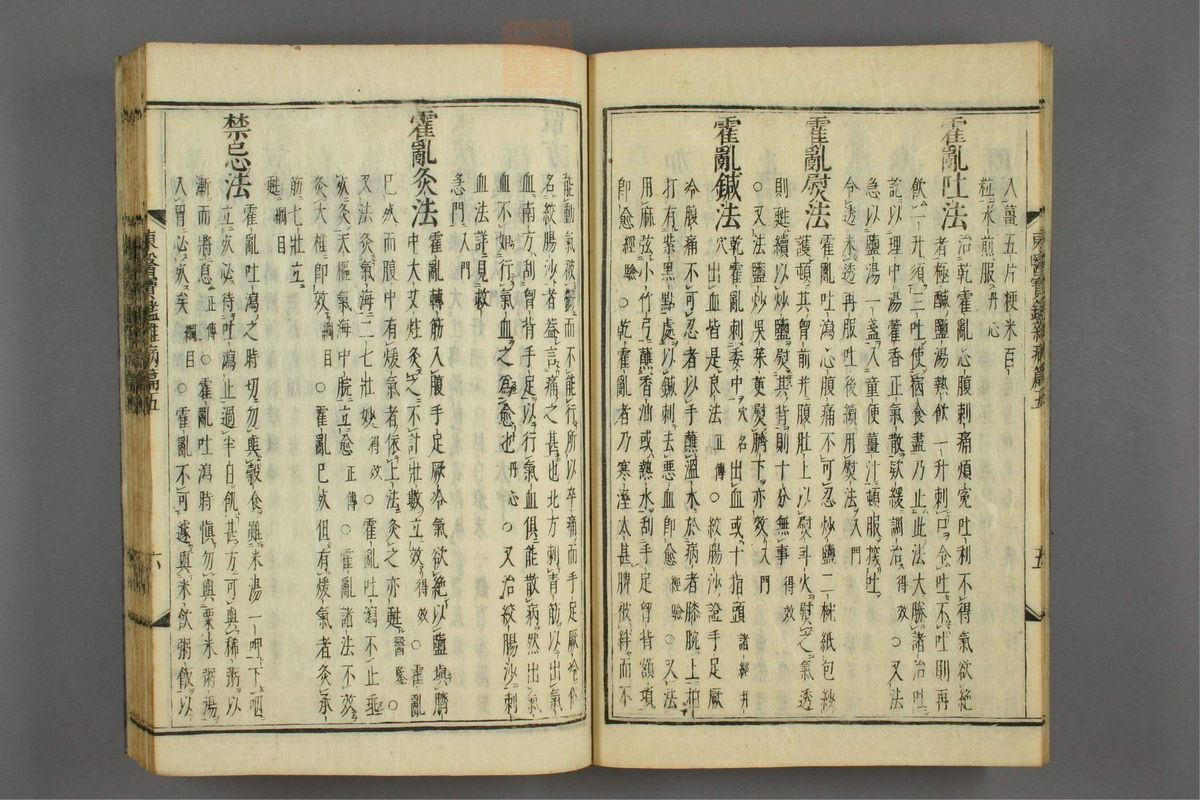 入薑五片梗米百
粒水煎服丹心
霍亂吐法
治乾霍亂心腹刺痛煩寃吐利不得氣欲絶
者極醎鹽湯熱飲一升刺口令吐不吐則再
飲一升須三吐使宿食盡乃止此法大勝諸治吐
訖以理中湯藿香正氣散欵緩調治得效○又法
急以鹽湯一盞入童便薑汁頓服探吐
令透未透再服吐後續用熨法入門
霍亂熨法
霍亂吐瀉心腹痛不可忍炒鹽二椀紙包紗
護頓其胷前幷腹肚上以熨斗火熨之氣透
則甦續以炒鹽熨其背則十分無事得效
○又法鹽炒吳茱更熨臍下亦效入門
霍亂鍼法
乾霍亂刺委中穴名出血或十指頭諸經井
穴出血皆是良法正傳○絞腸沙證手足厥
冷腹痛不可忍者以手蘸溫水於病者膝腕上拍
打有紫黑點處以鍼刺去惡血卽愈經驗○又法
用麻弦小竹弓蘸香油或熱水刮手足胷背額項
卽愈經驗○乾霍亂者乃寒溼太甚脾被絆而不
東醫寶鑑雜病篇五
五
能動氣被鬱而不能行所以卒痛而手足厥冷俗
名絞腸沙者蓋言痛之甚也北方刺靑筋以出氣
血南方刮胷背手足以行氣血俱能散病然出氣
血不如行氣血之爲愈也丹心○又治絞腸沙刺
血法詳見救
急門入門
霍亂灸法
霍亂轉筋入腹手足厥冷氣欲絶以鹽塡臍
中大艾炷灸之不計壯數立效得效○霍亂
已死而腹中有煖氣者依上法灸之亦甦醫鑑○
又法灸氣海二七壯妙得效○霍亂吐瀉不止垂
死灸天樞氣海中脘立愈正傳○霍亂諸法不效
灸大椎卽效綱目○霍亂已死但有煖氣者灸承
筋七壯立
甦綱目
禁忌法
霍亂吐瀉之時切勿與穀食雖米湯一呷下咽
立死必待吐瀉止過半日飢甚方可與稀粥以
漸而將息正傳○霍亂吐瀉時愼勿與粟米粥湯
入胃必死矣綱目○霍亂不可遽與米飮粥飯以
東醫寶鑑雜病篇五
六